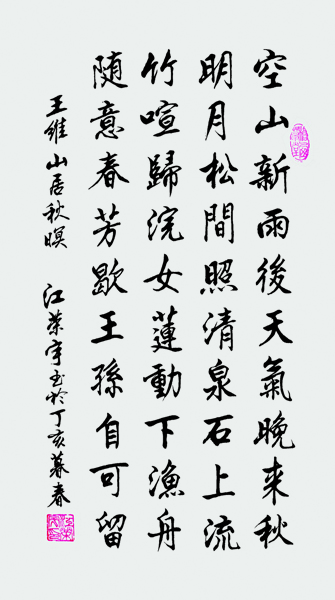 空山新雨後天氣晚来秋
明月松間照清泉石上流
竹喧歸浣女蓮動下漁舟
随意春芳歇王孫自可留
王維山居秋暝 江荣宇書於丁亥暮春